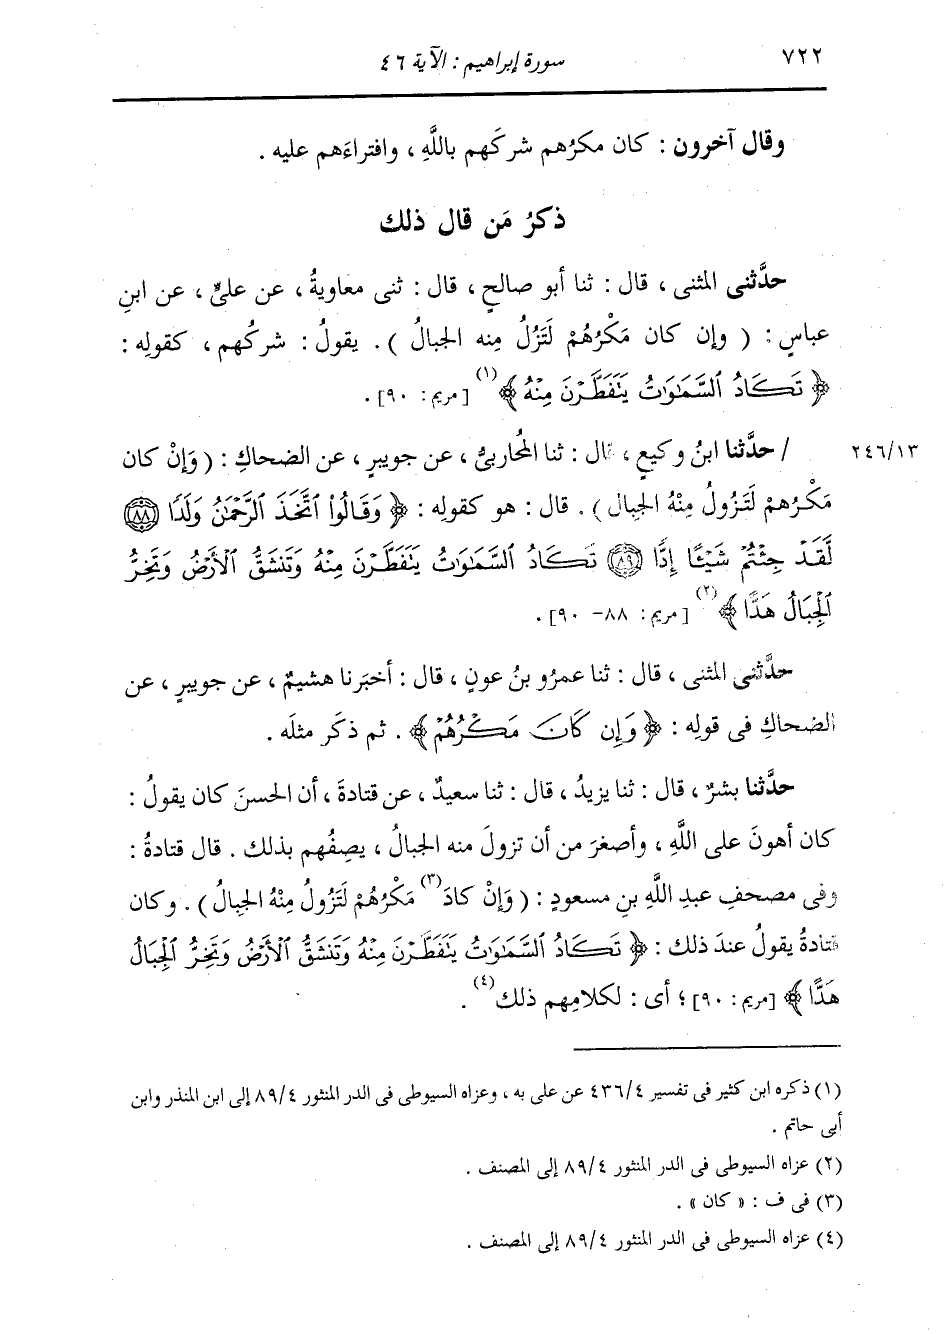 ٧٢٢
سورة إبراهيم : الآية ٤٦
وقال آخرون : كان مكرُهم شركَهم باللَّهِ ، وافتراءَهم عليه .
ذكرُ مَن قال ذلك
حدَّثنى المثنى ، قال : ثنا أبو صالحٍ ، قال : ثنى معاويةُ ، عن علىٍّ ، عن ابنِ
عباسٍ : ( وإن كان مَكْرُهُمْ لَتَزُلُ مِنه الجبالُ ) . يقولُ : شركُهم ، كقولِه :
﴿ تَكَادُ ٱلسَّمَـٰوَٰتُ يَتَفَطَّرْنَ مِنْهُ ﴾ (١) [مريم : ٩٠] .
٢٤٦/١٣
/ حدَّثنا ابنُ وكيعٍ ، قال : ثنا المُحاربىُّ ، عن جويبرٍ ، عن الضحاكِ : ( وَإنْ كان
مَكْرُهمْ لَتَزُولُ مِنْهُ الجِبال ) . قال : هو كقولِه : ﴿ وَقَالُوا۟ ٱتَّخَذَ ٱلرَّحْمَـٰنُ وَلَدًا ﴿٨٨﴾
لَّقَدْ جِئْتُمْ شَيْـًٔا إِدًّا ﴿٨٩﴾ تَكَادُ ٱلسَّمَـٰوَٰتُ يَتَفَطَّرْنَ مِنْهُ وَتَنشَقُّ ٱلْأَرْضُ وَتَخِرُّ
ٱلْجِبَالُ هَدًّا ﴾ (٢) [مريم : ٨٨- ٩٠] .
حدَّثنى المثنى ، قال : ثنا عمرُو بنُ عونٍ ، قال : أخبَرنا هشيمٌ ، عن جويبرٍ ، عن
الضحاكِ فى قولِه : ﴿ وَإِن كَانَ مَكْرُهُمْ ﴾ . ثم ذكَر مثلَه .
حدَّثنا بشرٌ ، قال : ثنا يزيدُ ، قال : ثنا سعيدٌ ، عن قتادةَ ، أن الحسنَ كان يقولُ :
كان أهونَ على اللَّهِ ، وأصغرَ من أن تزولَ منه الجبالُ ، يصِفُهم بذلك . قال قتادةُ :
وفى مصحفِ عبدِ اللَّهِ بنِ مسعودٍ : ( وَإنْ كادَ (٣) مَكْرُهُمْ لَتَزُولُ مِنْهُ الجبالُ ) . وكان
قتادةُ يقولُ عندَ ذلك : ﴿ تَكَادُ ٱلسَّمَـٰوَٰتُ يَتَفَطَّرْنَ مِنْهُ وَتَنشَقُّ ٱلْأَرْضُ وَتَخِرُّ ٱلْجِبَالُ
هَدًّا ﴾ [مريم : ٩٠] ؛ أى : لكلامِهم ذلك (٤) .
(١) ذكره ابن كثير فى تفسير ٤٣٦/٤ عن على به ، وعزاه السيوطى فى الدر المنثور ٨٩/٤ إلى ابن المنذر وابن
أبى حاتم .
(٢) عزاه السيوطى فى الدر المنثور ٨٩/٤ إلى المصنف .
(٣) فى ف : « كان » .
(٤) عزاه السيوطى فى الدر المنثور ٨٩/٤ إلى المصنف .